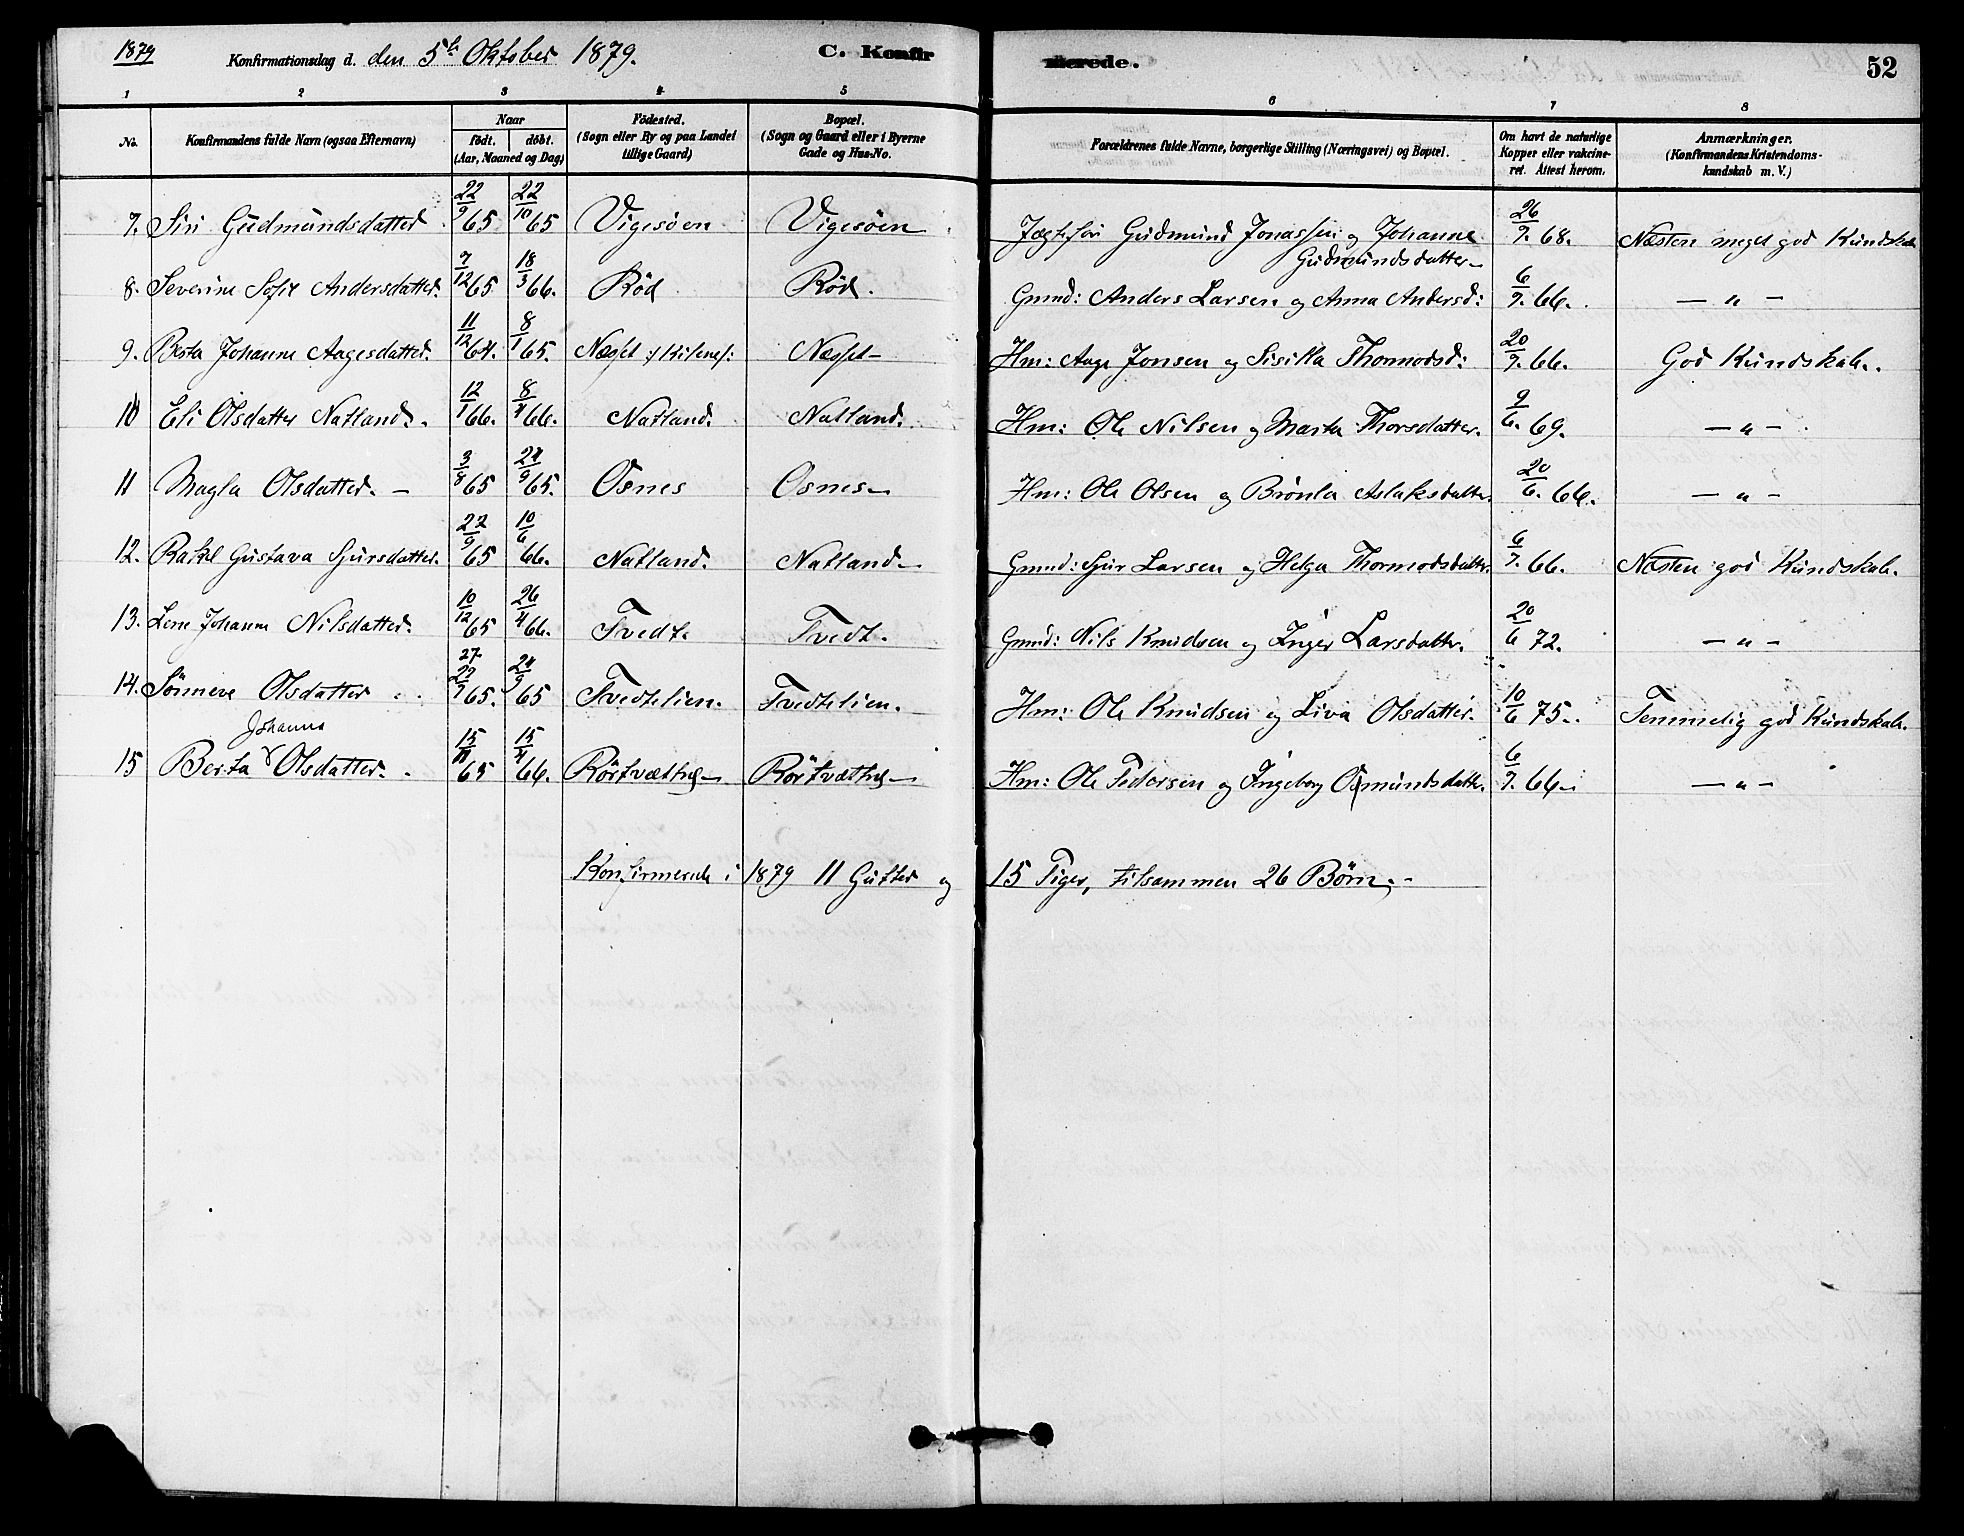 1879 Konfirmationsdag d. den 5te Oktober 1879. C. Konfirmerede. 52
1 2 3 4 5 6 7 8
No. Konfirmandens fulde Navn (ogsaa Efternavn) Naar født. døbt. (Aar, Maaned og Dag) Fødested. (Sogn eller By og paa Landet tillige Gaard) Bopæl. (Sogn og Gaard eller i Byerne Gade og Hus-No. Forældrenes fulde Navne, borgerlige Stilling (Næringsvei) og Bopæl. Om havt de naturlige Kopper eller vakcineret. Attest herom. Anmærkninger. (Konfirmandens Kristendomskundskab m. V.)
7. Siri Gudmundsdatter 22/9 65 22/10 65 Vigesøen Vigesøen Jægtefør Gudmund Jonassen og Johanne Gudmundsdatter 26/7. 68. Næsten meget god Kundskab
8. Severine Sofie Andersdatter. 7/12 65 18/3 66. Rød Rød. Grmd: Anders Larsen og Anna Andersd: 6/7. 66. — " —
9. Berta Johanne Aagesdatter. 11/12 64. 8/1 65. Næsset Næsset Hm: Aage Jonsen og Sisilla Thormodsd: 20/7. 66. God Kundskab.
10 Eli Olsdatter Natland. 12/1 66. 8/4 66. Natland. Natland. Hm: Ole Nilsen og Marta Thorsdatter. 9/6. 69. — " —
11 Magla Olsdatter. — 3/8 65 24/9 65. Osnes Osnes Hm: Ole Olsen og Brønla Aslaksdatter. 20/6. 66. — " —
12. Rakel Gustava Sjursdatter. 22/9 65 10/6 66. Natland. Natland. Grmd: Sjur Larsen og Helga Thormodsdatter. 6/7. 66. Næsten god Kundskab.
13. Lene Johanne Nilsdatter. 10/12 65 26/4 66. Tvedt. Tvedt. Grmd: Nils Knudsen og Inger Larsdatter. 20/6 72. — " —
14. Sønneve Olsdatter 27. 22/7 65. 24/9 65 Tvedtelien. Tvedtelien. Hm: Ole Knudsen og Liva Olsdatter. 10/6 75. Temmelig god Kundskab.
15 Berta Johanna Olsdatter. 15/11 65 15/4 66. Rørtvætthg Rørtvætthg Hm: Ole Pedersen og Ingeborg Osmundsdatter. 6/7. 66. — " —
Konfirmerede i 1879 11 Gutter og 15 Piger, tilsammen 26 Børn.